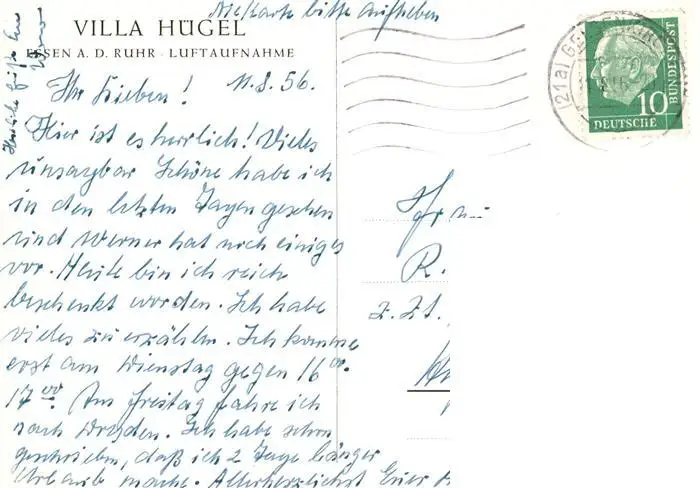 Die Karte bitte aufheben
VILLA HÜGEL
ESSEN A. D. RUHR · LUFTAUFNAHME
Herzliche Grüße Euer
Werner
11.8.56.
Ihr Lieben!
Hier ist es herrlich! Vieles
unsagbar Schöne habe ich
in den letzten Tagen gesehen
und Werner hat noch einiges
vor. Heute bin ich reich
beschenkt worden. Ich habe
vieles zu erzählen. Ich komme
erst am Dienstag gegen 16 00.
17 00 Am Freitag fahre ich
nach Dresden. Ich habe schon
geschrieben, daß ich 2 Tage länger
Urlaub mache. Allerherzlichst Euer
(21a) GELSENKIRCHEN
DEUTSCHE
BUNDESPOST
10
R.
z. Zt.